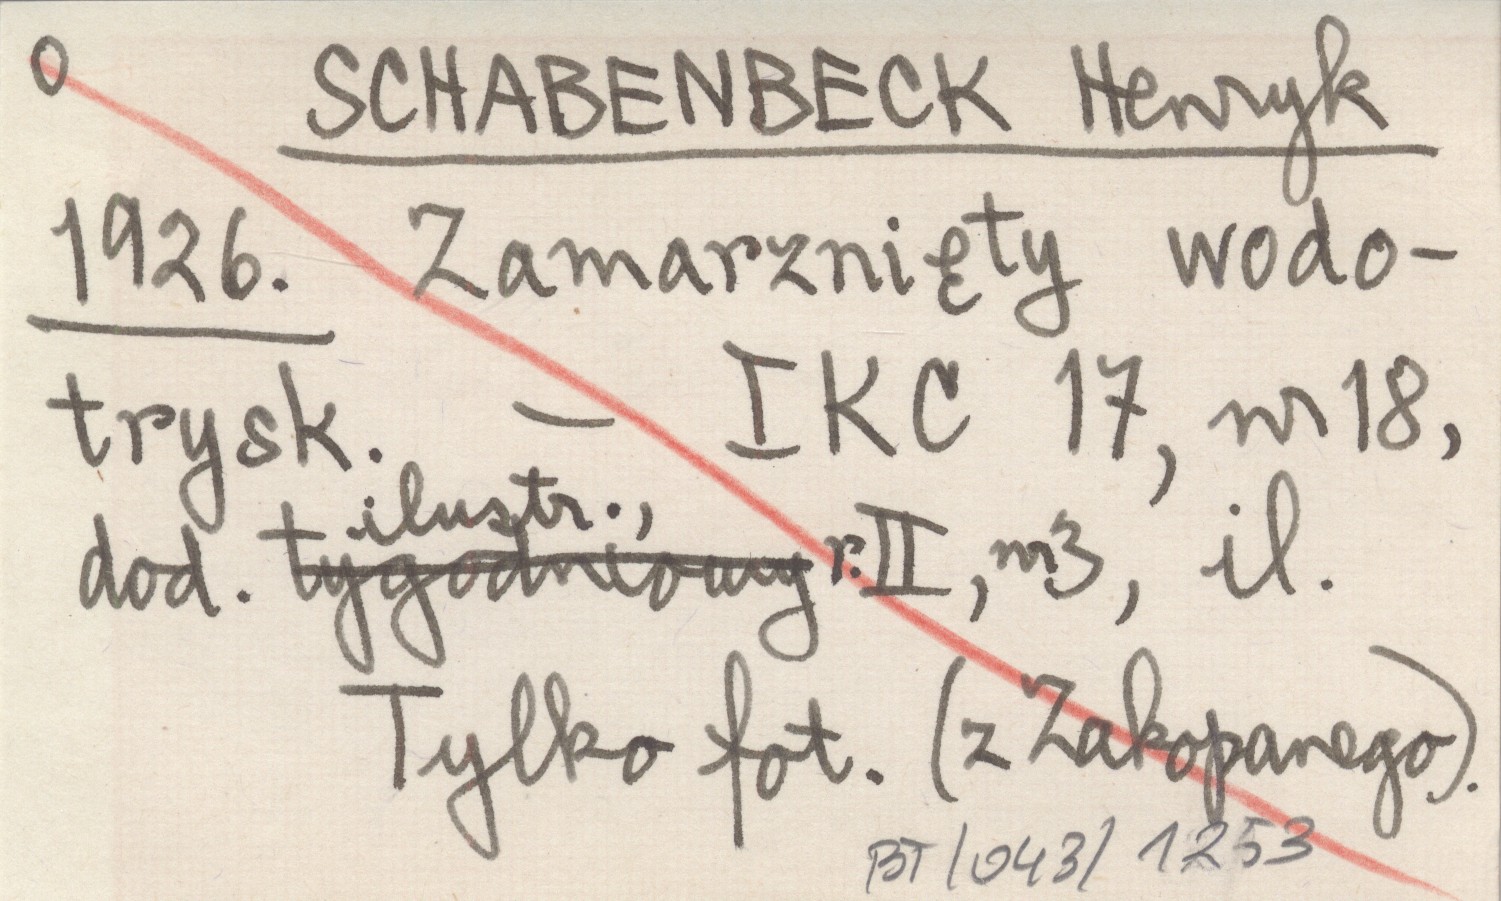 O SCHABENBECK Henryk
1926. Zamarznięty wodo-
trysk. – IKC 17, nr 18,
ilustr.,
dod. tygodniowy r. II, nr 3, il.
Tylko fot. (z Zakopanego).
BT/043/1253